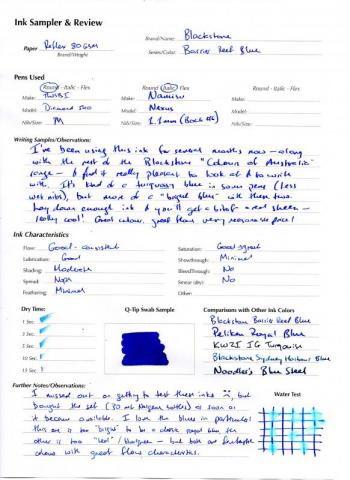 Ink Sampler & Review
Brand/Name: Blackstone
Paper Reflex 80 GSM Series/Color: Barrier Reef Blue
Brand/Weight
Pens Used
Round - Italic - Flex Round - Italic - Flex Round - Italic - Flex
Make: TWSBI Make: Namisu Make:
Model: Diamond 540 Model: Nexus Model:
Nib/Size: M Nib/Size: 1.1mm (Bock #6) Nib/Size:
Writing Samples/Observations:
I've been using this ink for several months now - along
with the rest of the Blackstone "Colours of Australia"
range - & find it really pleasant to look at & to write
with. It's kind of a turquoisy blue in some pens (less
wet nibs), but more of a "bright blue" with these two.
Lay down enough ink & you'll get a bit of a red sheen -
really cool! Great colour, great flow, very reasonable price!
Ink Characteristics
Flow: Good - consistent Saturation: Good
Lubrication: Good Showthrough: Minimal
Shading: Moderate BleedThrough: No
Spread: None Smear (dry): No
Feathering: Minimal Other:
Dry Time: Q-Tip Swab Sample Comparisons with Other Inks
1 Sec. Blackstone Barrier Reef Blue
3 Sec. Pelikan Royal Blue
5 Sec. KWZI IG Turquoise
10 Sec. Blackstone Sydney Harbour Blue
15 Sec. Noodler's Blue Steel
Further Notes/Observations: Water Test
I missed out on getting to test these inks, but
bought the set (30 ml bottles) as soon as
it became available. I love the blues in particular
this one is too "bright" to be a classic royal blue, the
other is too "teal" / - but both are fantastic
colours with great flow characteristics.